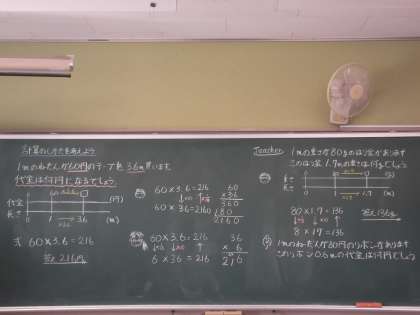 計算のしかたを考えよう
1mのねだんが60円のテープを3.6m買います
代金は何円になるでしょう
0 60 (円)
代金
長さ
0 1 3.6 (m)
×3.6
式 60×3.6=216
答え 216円
60×3.6=216
↓×10
60×36=2160
60
×36
360
180
2160
60×3.6=216
6×36=216
36
×6
216
Teacher
1mの重さが80gのはり金があります
このはり金1.7mの重さは何gでしょう
0 80 (g)
重さ
長さ
0 1 1.7 (m)
80×1.7=136
答え 136g
8×17=136
1mのねだんが60円のリボンがあります
このリボン0.6mの代金は何円でしょう